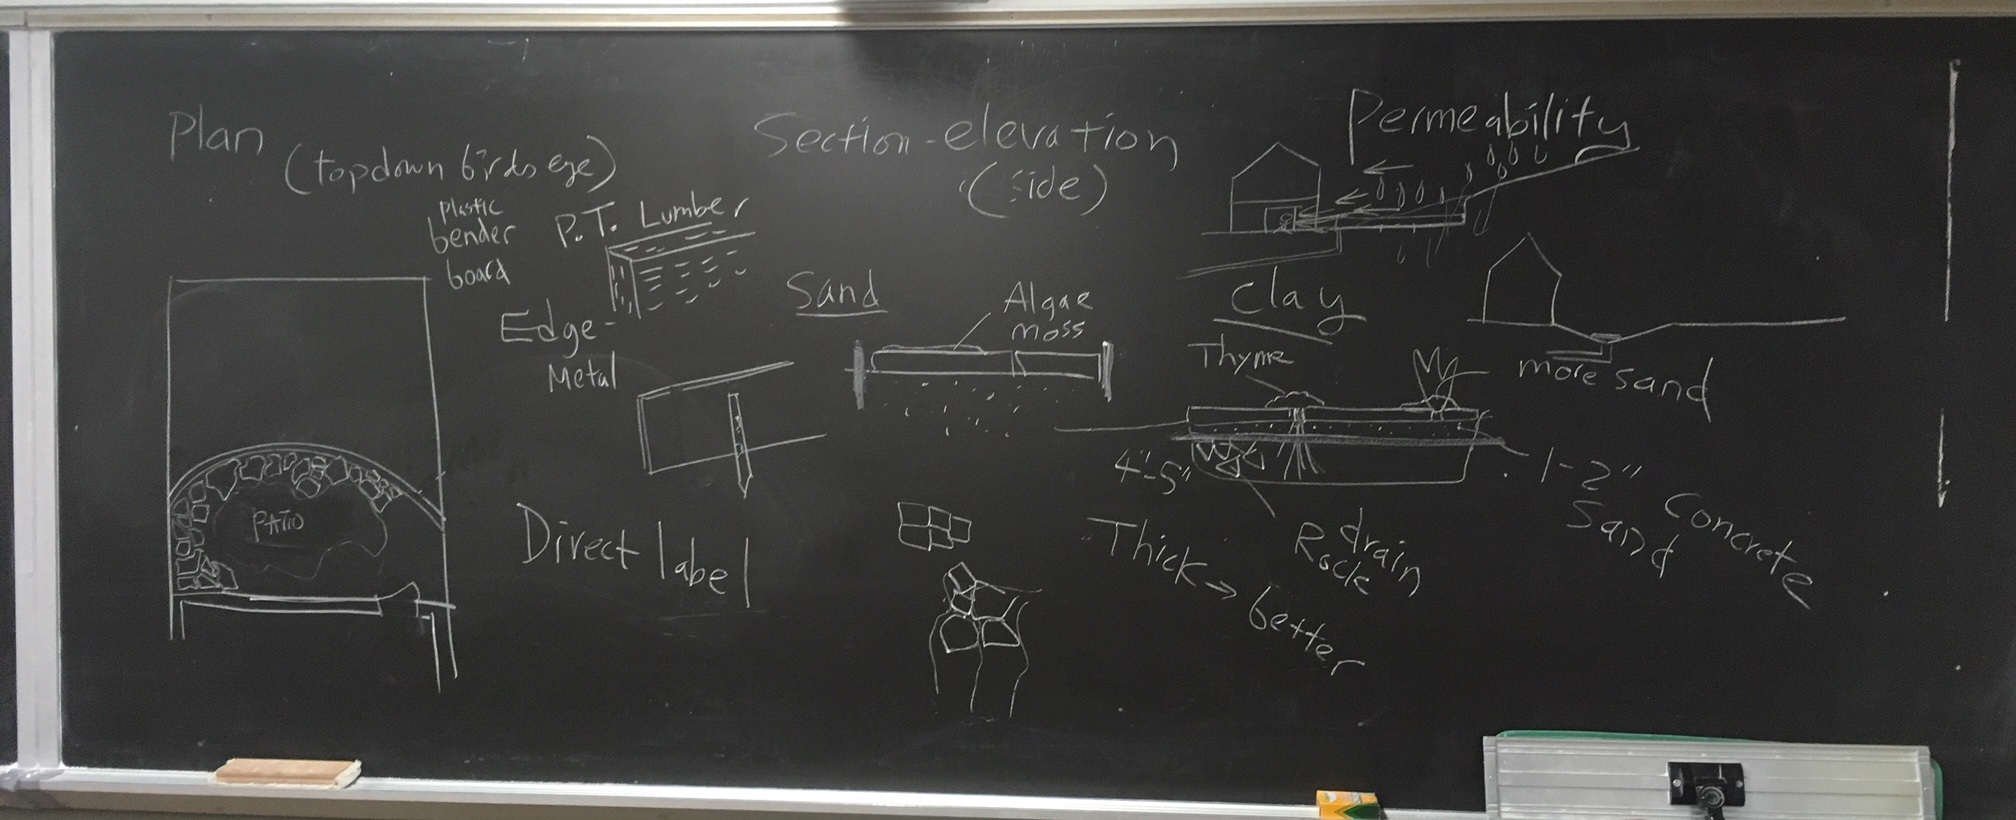 Plan
(topdown birds eye)
Plastic
bender
board
P.T. Lumber
Edge-
Metal
PATIO
Direct label
Section-elevation
(side)
Sand
Algae
moss
Permeability
Clay
Thyme
more sand
4"-5"
1-2"
Sand
Concrete
drain
Rock
Thick → better